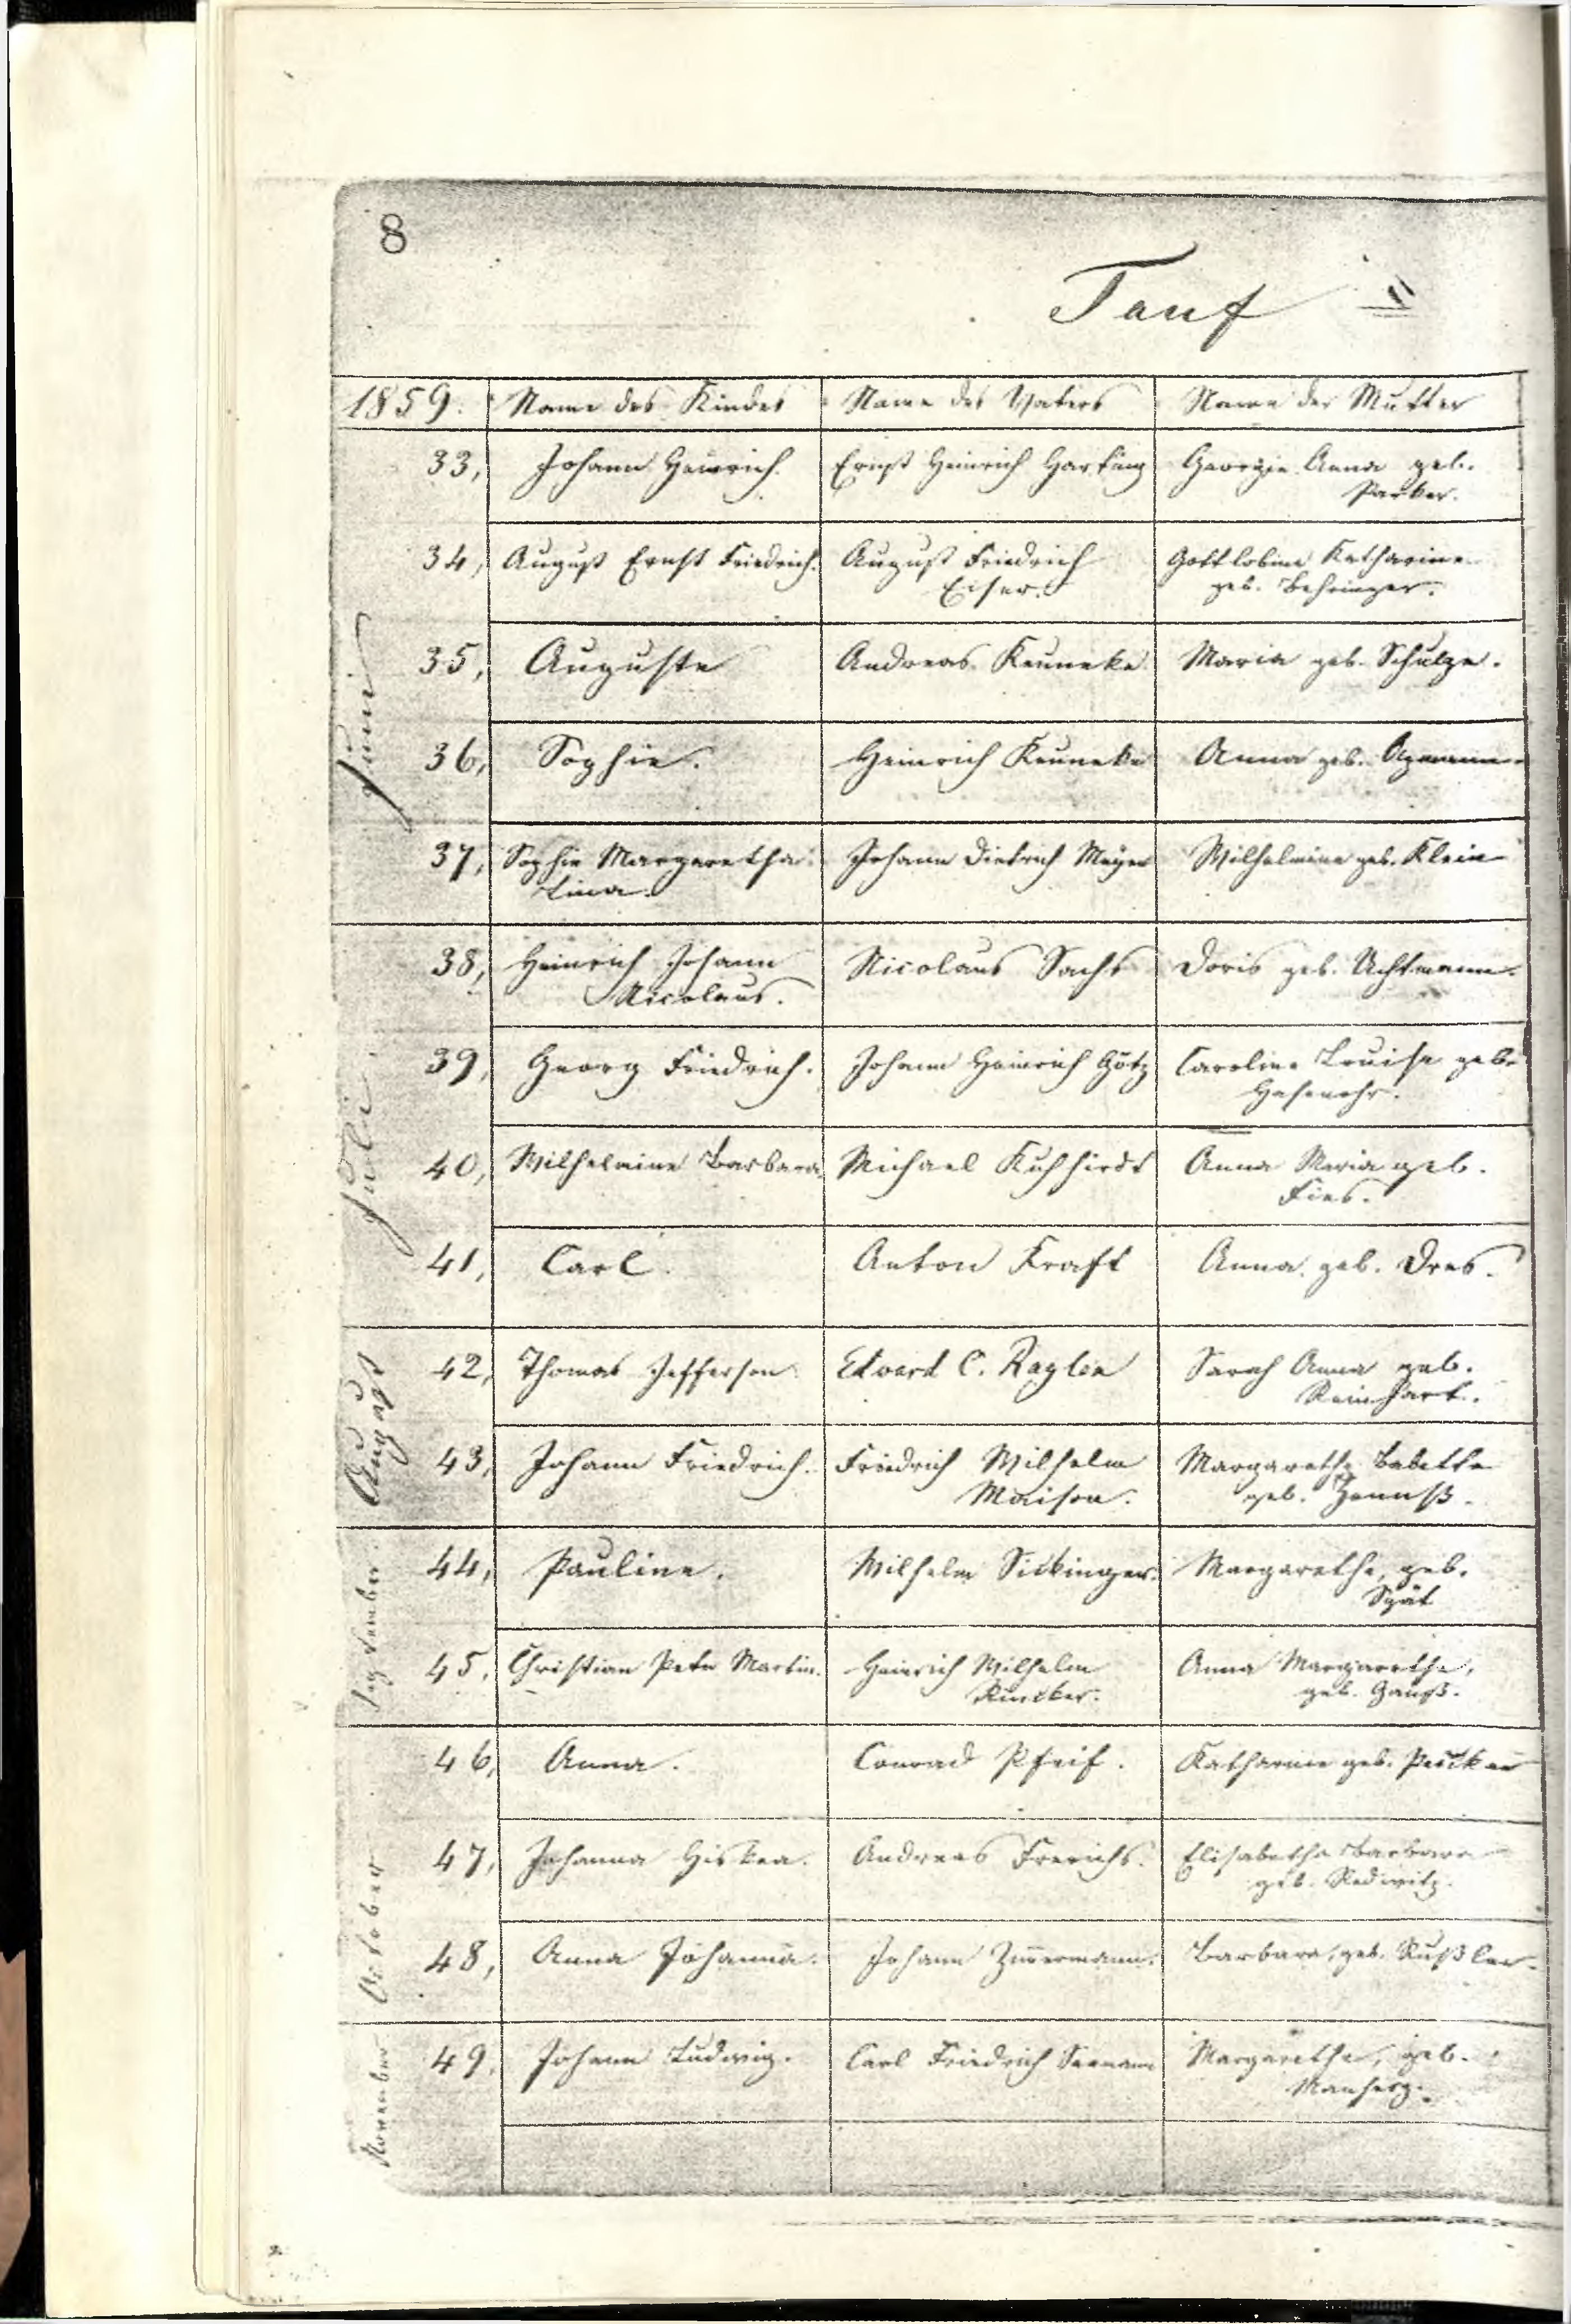 8
Tauf
1859. Name des Kindes Name des Vaters Name der Mutter
Juni
33, Johann Heinrich. Ernst Heinrich Harting Georgie Anna geb.
Parker.
34, August Ernst Friedrich. August Friedrich Gottlobine Katharine
Eiser. geb. Behringer.
35, Auguste Andreas Keuneke Maria geb. Schulze.
36, Sophie. Heinrich Keuneke Anna geb.
37, Sophie Margaretha Johann Dietrich Meyer Wilhelmine geb. Klein
Lina.
Juli
38, Heinrich Johann Nicolaus Sachs Doris geb. Uchtmann.
Nicolaus.
39, Georg Friedrich. Johann Heinrich Götz Caroline Louise geb.
Hasenohr.
40, Wilhelmine Barbara Michael Kuhhirdt Anna Maria geb.
Fies.
41, Carl. Anton Kraft Anna geb. Dres.
August
42, Thomas Jefferson Edvard C. Raglen Sarah Anna geb.
Reinhart.
43, Johann Friedrich. Friedrich Wilhelm Margarethe Babette
Maison. geb.
September
44, Pauline. Wilhelm Sickinger. Margarethe, geb.
Spät
45, Christian Peter Martin. Heinrich Wilhelm Anna Margarethe,
Runcker. geb. Gauß.
October
46, Anna. Conrad Pfeif. Katharine geb.
47, Johanna Hiskea. Andreas Frerichs. Elisabetha Barbara
geb. Redwitz.
48, Anna Johanna. Johann Zim̅ermann. Barbara, geb. Rußler.
November
49, Johann Ludwig. Carl Friedrich Seemann Margarethe, geb.
Manherz.